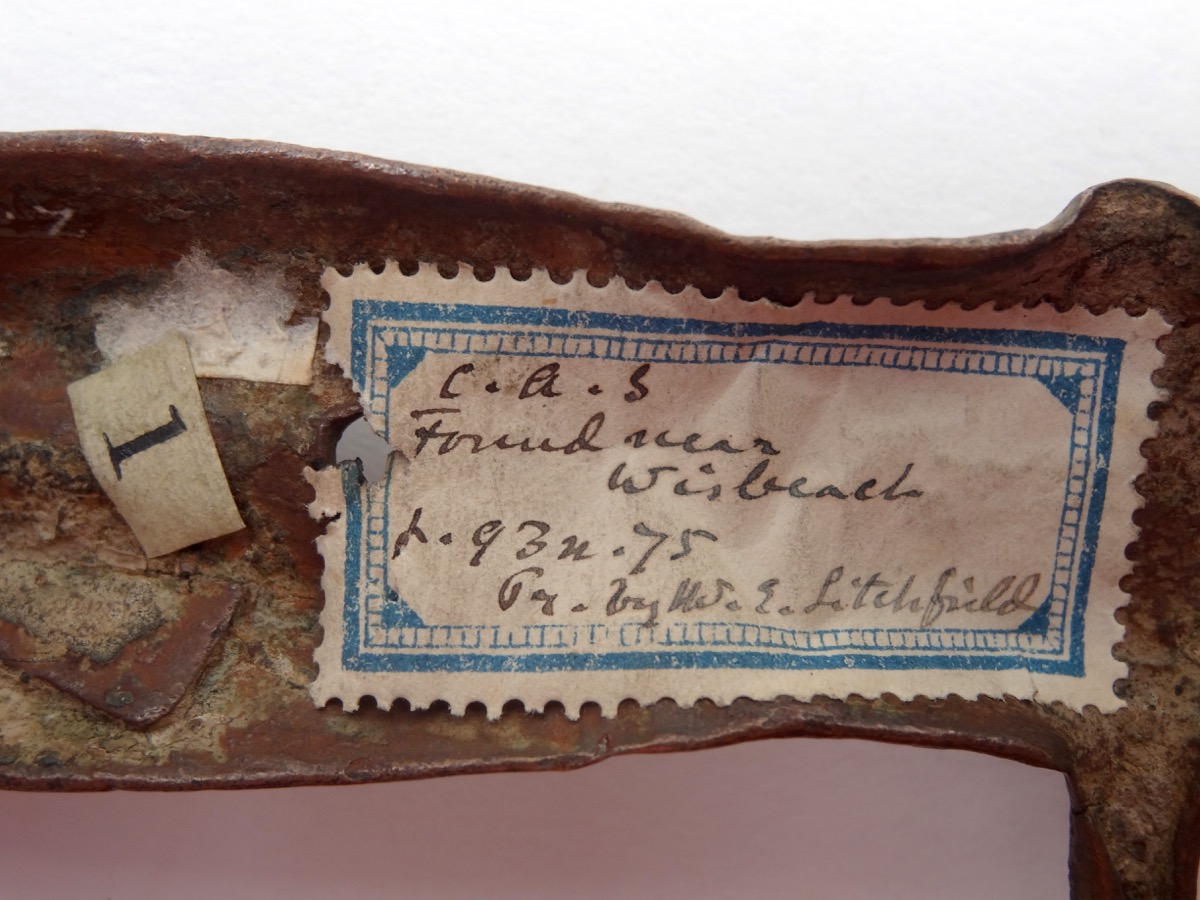 I
C. A. S
Found near
Wisbeach
p. 93 n. 75
Pr. by W. E. Litchfield